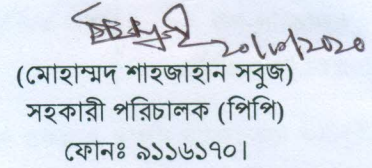 ২০/১০/২০২০
(মোহাম্মদ শাহজাহান সবুজ)
সহকারী পরিচালক (পিপি)
ফোনঃ ৯১১৬১৭০।